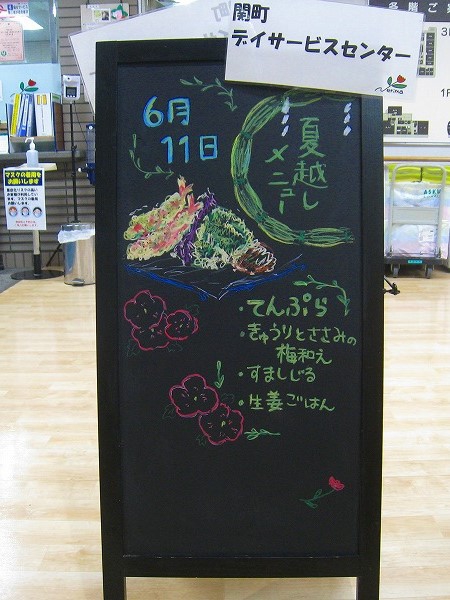 関町
デイサービスセンター
Nerima
6月
11日
夏越し
メニュー
・てんぷら
・きゅうりとささみの
梅和え
・すましじる
・生姜ごはん
マスクの着用を
お願いします
各階ご案
3
1F